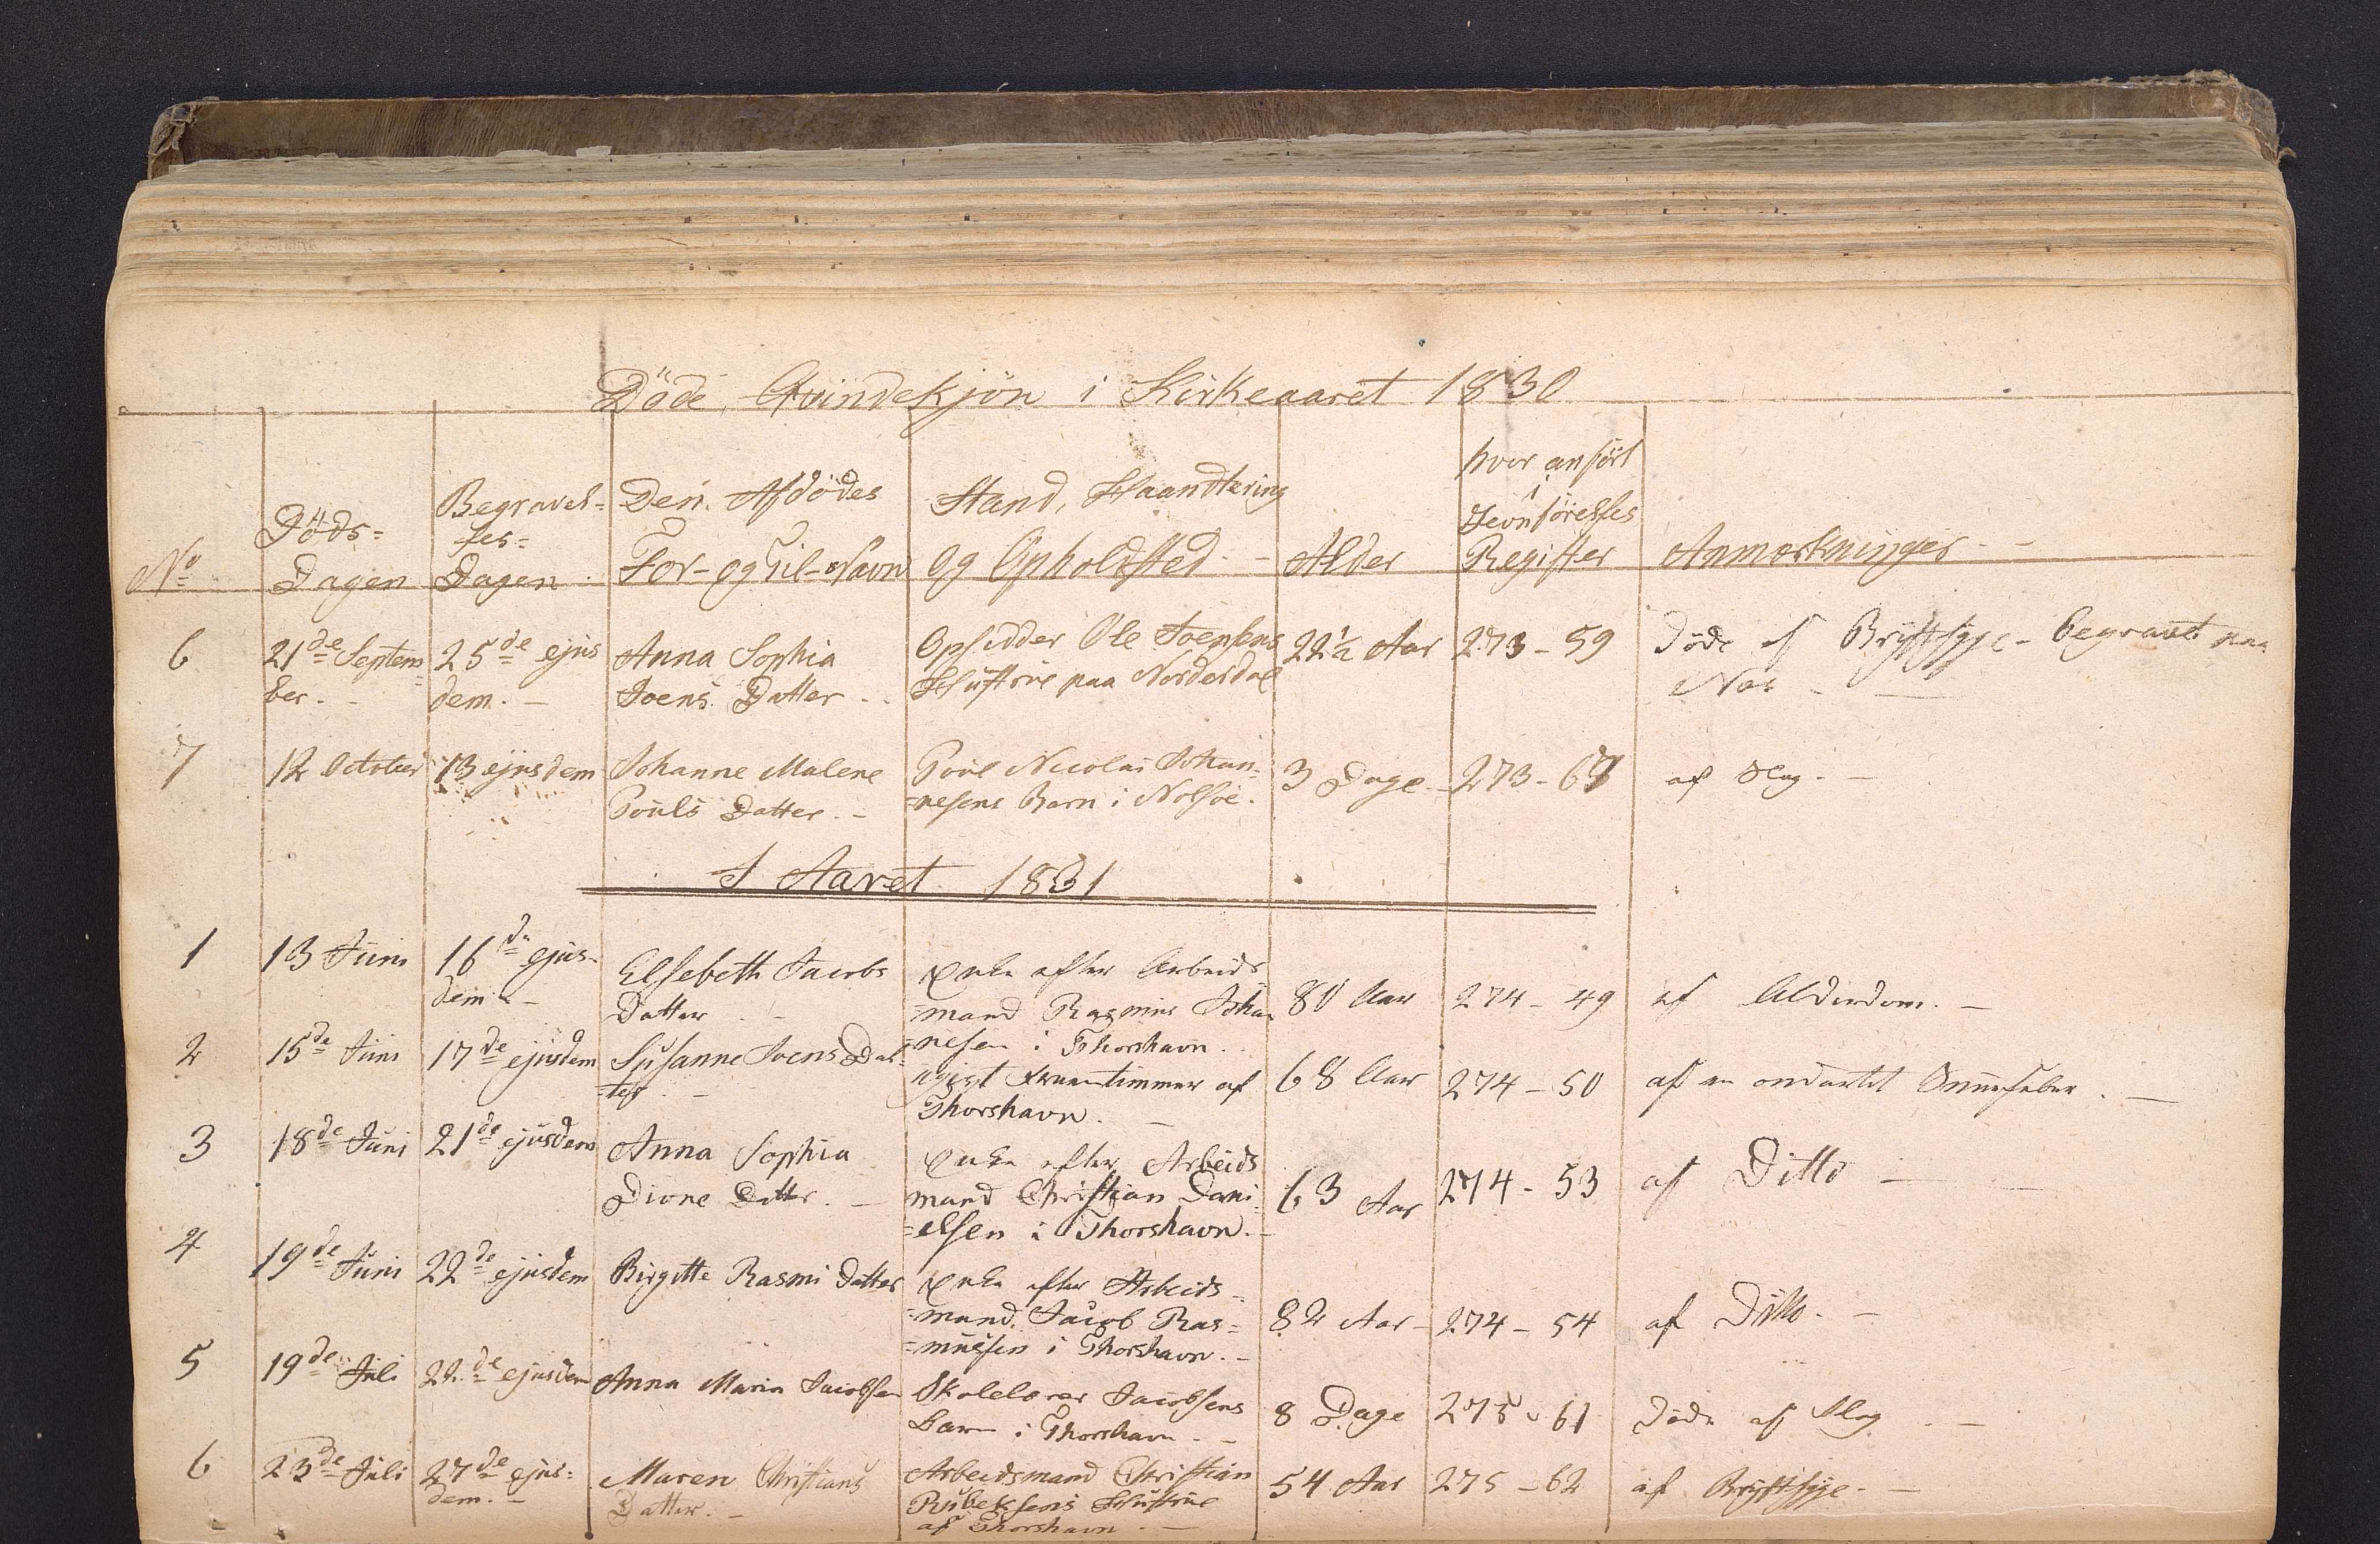 Döde Qvindekjön i Kirkeaaret 1830
No
Döds=
Dagen
Begravel=
ses=
Dagen
Den Afdödes
For- og Til-Navn
Stand, Haandtering
og Opholdsted
Alder
hvor anfört
i
Jevnförelses
Register
Anmærkninger
6
21de Septem=
ber.
25de ejus
dem.
Anna Sophia
Joens Datter
Opsidder Ole Joensens
Hustrue paa Norderdal
22½ Aar
273-59
Döde af Brystsyge - begravet paa
Næs
7
12 October
13 ejusdem
Johanne Malene
Pouls Datter.
Poul Nicolai Johan=
=nesens Barn i Nolsoe.
3 Dage
273-67
af Slag.
I Aaret 1831
1
13 Juni
16de ejus-
dem
Elsebeth Jacobs
Datter
Enke efter Arbeids
=mand Rasmus Johan
=nesen i Thorshavn.
80 Aar
274-49
af Alderdom.
2
15de Juni
17de ejusdem
Susanne Joens Dat=
=ter
ugivt Fruentimmer af
Thorshavn.
68 Aar
274-50
af en ondartet Snuefeber.
3
18de Juni
21de ejusdem
Anna Sophia
Datter.
Enke efter Arbeids
mand Christian Dani
=elsen i Thorshavn.
63 Aar
274-53
af Ditto
4
19de Juni
22de ejusdem
Birgitte Rasmi Datter
Enke efter Arbeids=
=mand Jacob Ras=
=mussen i Thorshavn.
82 Aar
274-54
af Ditto.
5
19de Juli
22de ejusdem
Anna Maria Jacobsen
Skolelærer Jacobsens
Barn i Thorshavn.
8 Dage
275-61
Döde af Slag
6
23de Juli
27de ejus=
dem.
Maren Christians
Datter.
Arbeidsmand Christian
Rubeksens Hustrue
af Thorshavn.
54 Aar
275-62
af Brystsyge.